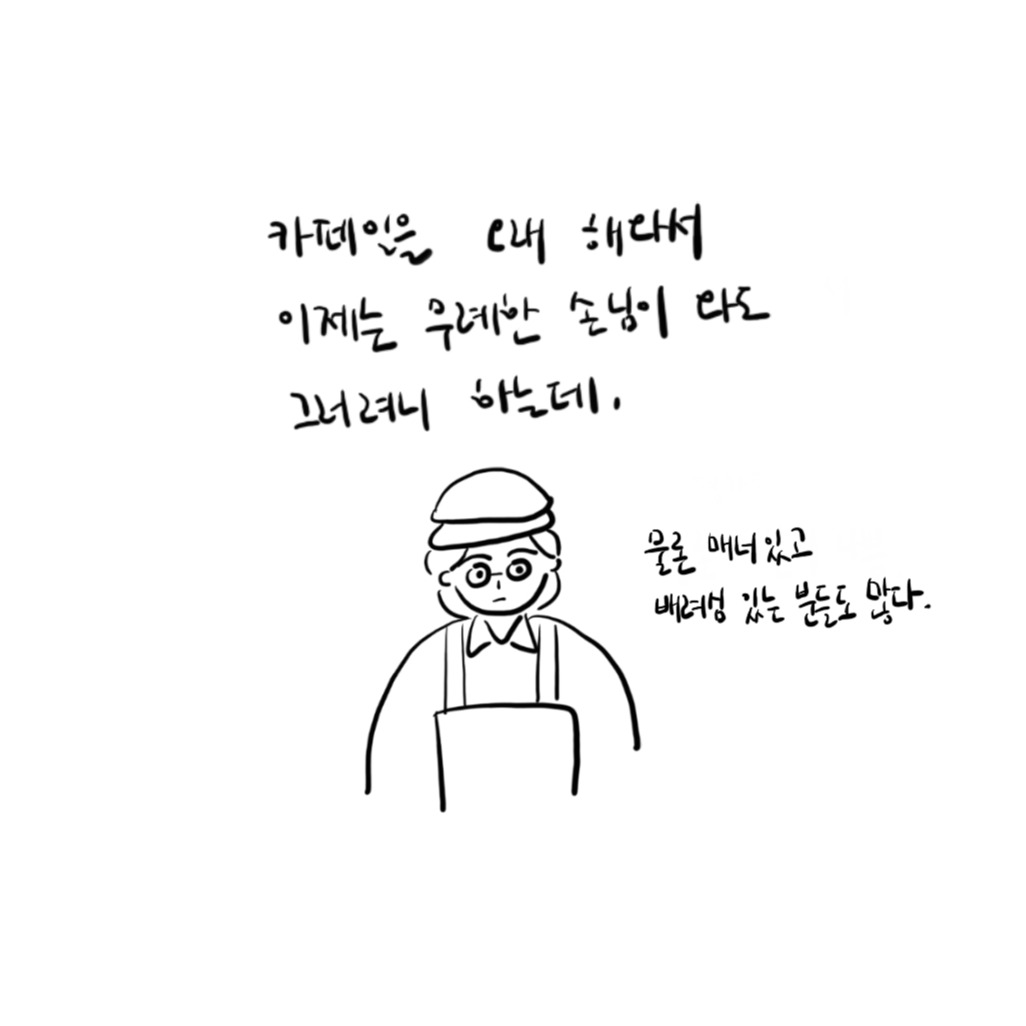 카페일을 오래 해와서
이제는 무례한 손님이 와도
그러려니 하는데.
물론 매너있고
배려심 있는 분들도 많다.